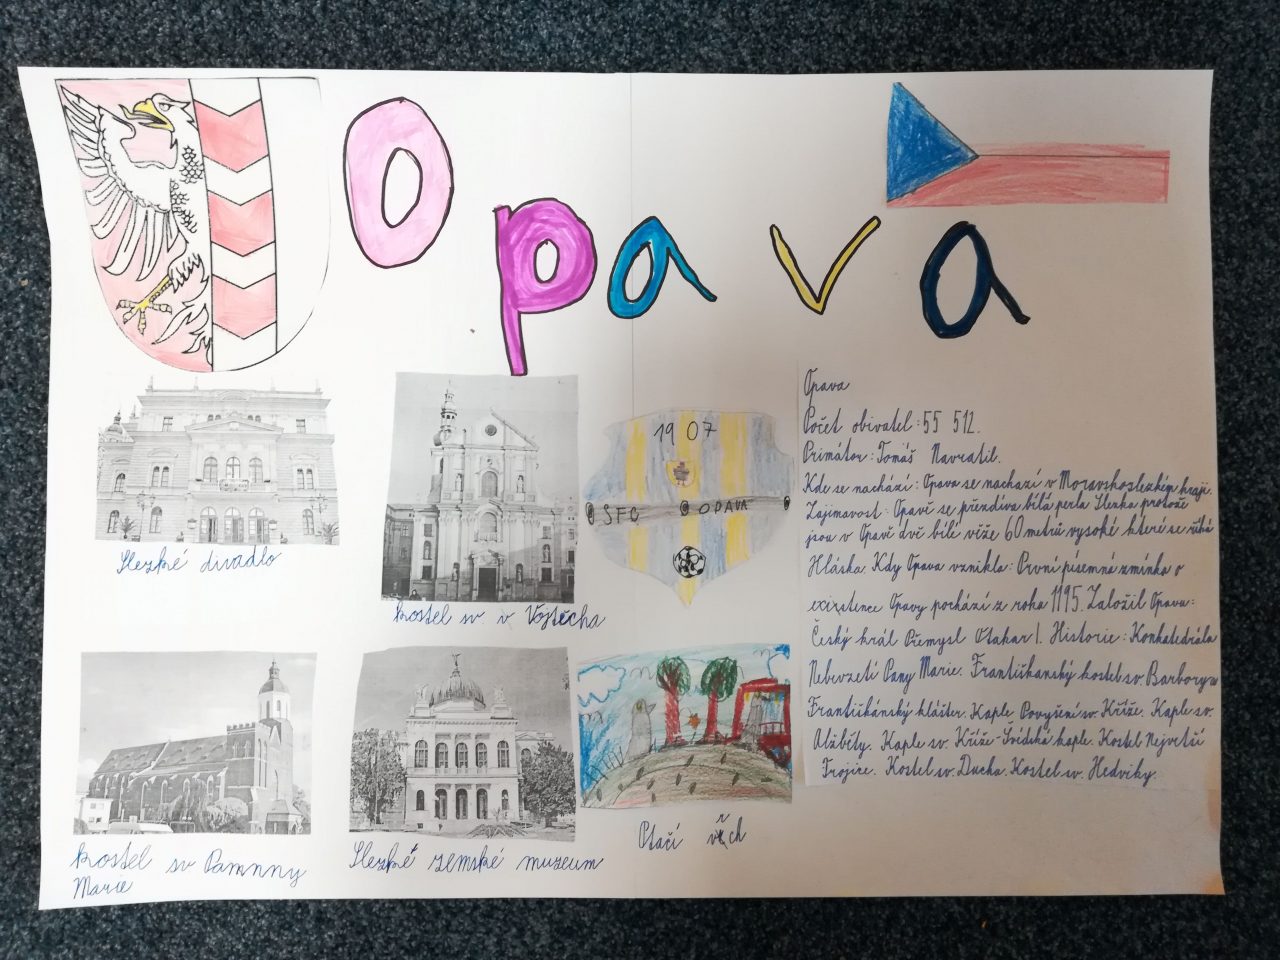 Opava
1907
SFC OPAVA
Slezké divadlo
kostel sv v Vojtěcha
kostel sv Pamnny
Marie
Slezké zemské muzeum
Ptačí vrch
Opava
Počet obivatel: 55 512.
Primátor: Tomáš Navratil.
Kde se nachází: Opava se nachazí v Moravskoslezkém kraji.
Zajimavost: Opavě se přezdiva bílá perla Slezka protože
jsou v Opavě dvě bílé věže 60 metrů vysoké které se říká
Hláska. Kdy Opava vznikla: První písemná zmínka o
existence Opavy pochází z roka 1195. Založil Opava:
Český král Přemysl Otakar I. Historie: Konkatedrála
Nebevzetí Pany Marie. Františkanský kostel sv. Barbory.
Františkánský klášter. Kaple Povyšení sv. Kříže. Kaple sv.
Alžběty. Kaple sv. Kříže - Švédská kaple. Kostel Nejvetší
Trojice. Kostel sv. Ducha. Kostel sv. Hedviky.